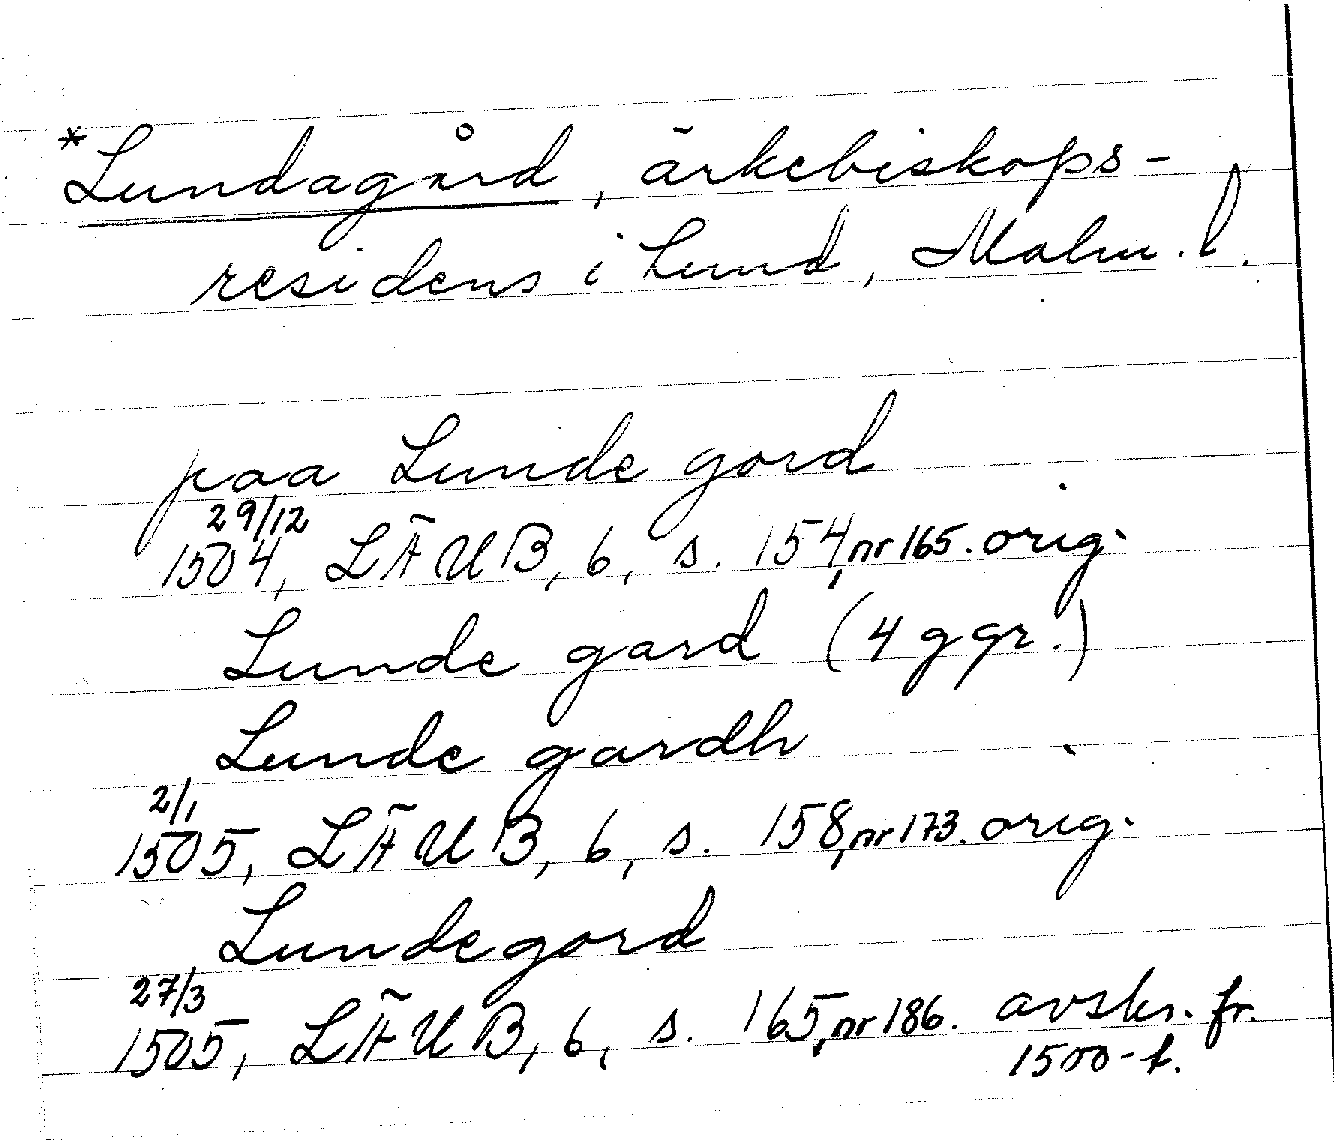 *Lundagård, ärkebiskops-
residens i Lund, Malm. l.
paa Lunde gord
29/12
1504, LÄUB, 6, s. 154, nr 165. orig.
Lunde gard (4 ggr.)
Lunde gardh
2/1
1505, LÄUB, 6, s. 158, nr 173. orig.
Lundegord
27/3
1505, LÄUB, 6, s. 165, nr 186. avskr. fr.
1500-t.